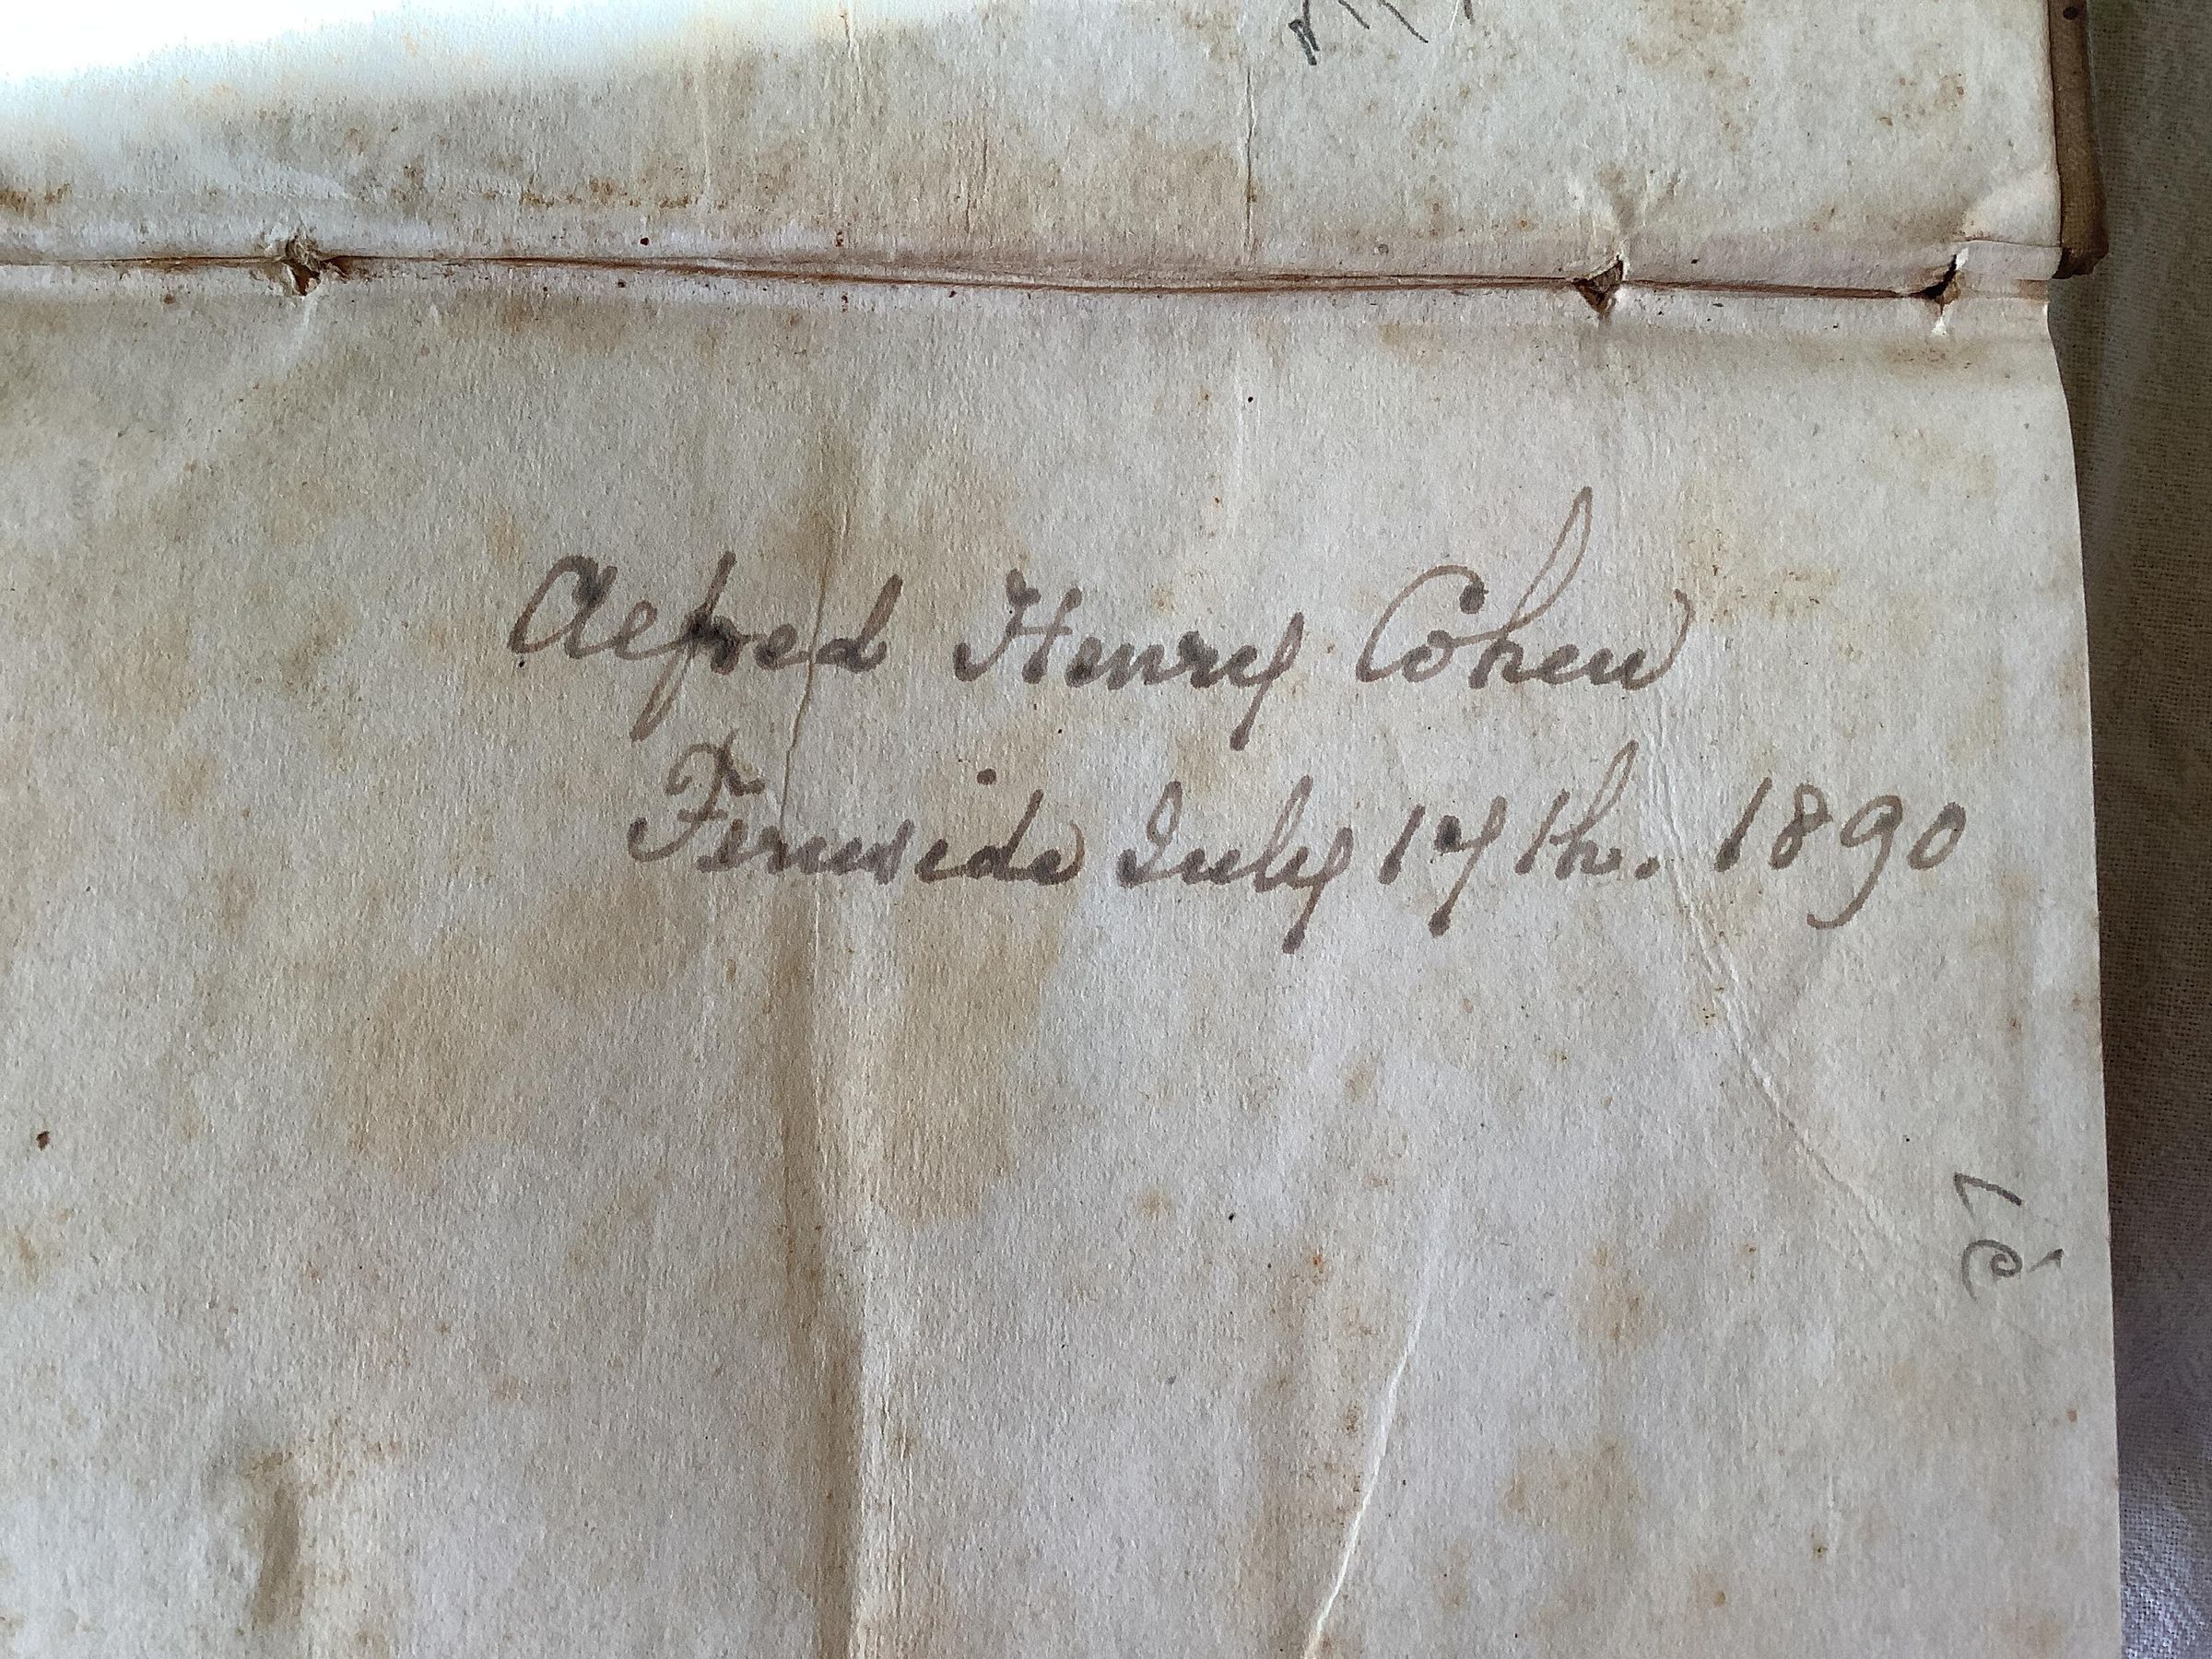 Alfred Henry Cohen
Ferneside July 17th. 1890